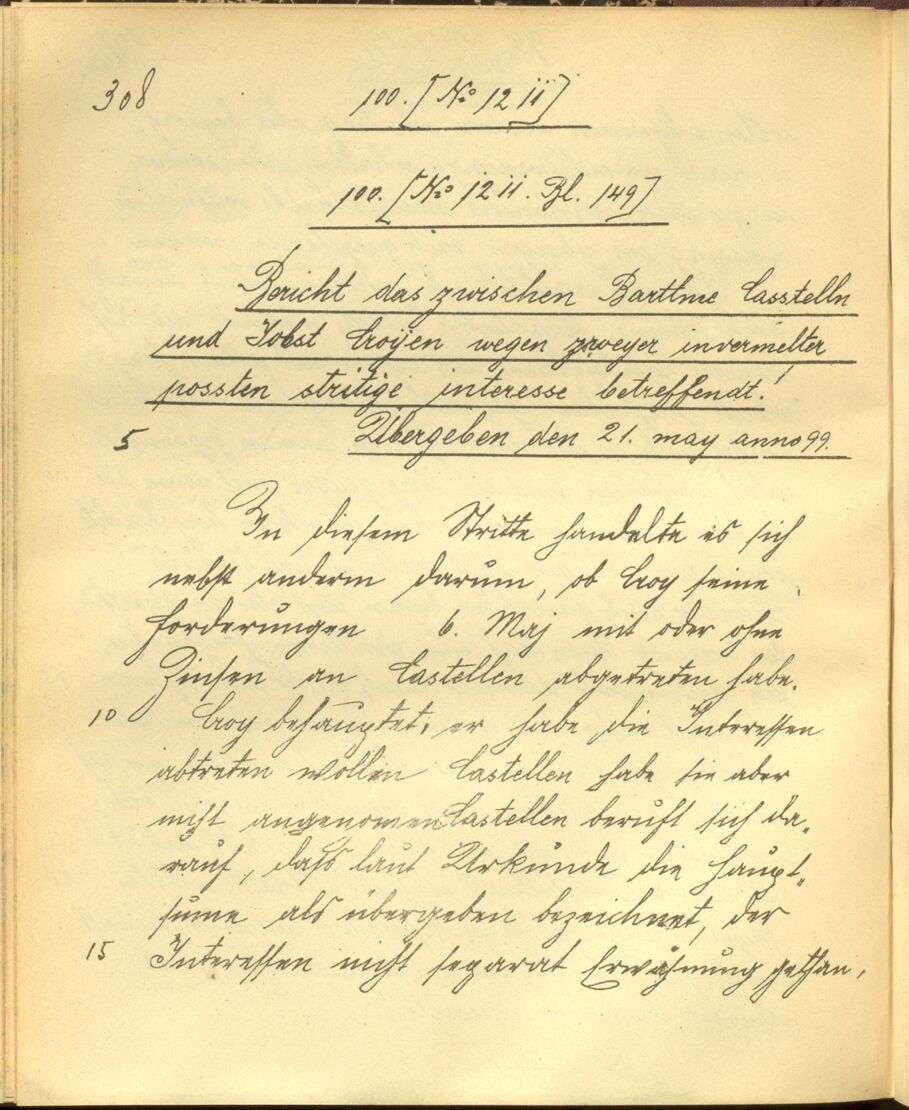 308
100. [No 12 ii]
100. [No 12 ii. Bl. 149]
Bericht das zwischen Bartlme Casstelln
und Jobst Croyen wegen zweyer invermelter
possten stritige interesse betreffendt!
5 Übergeben den 21. may anno 99.
In diesem Stritte handelte es sich
nebst anderm darum, ob Croy seine
Forderungen 6. Maj mit oder ohne
Zinsen an Castellen abgetreten habe.
10 Croy behauptet, er habe die Interessen
abtreten wollen Castellen habe sie aber
nicht angenomen Castellen beruft sich da„
rauf, daß laut Urkunde die Haupt„
sume als übergeben bezeichnet, der
15 Interessen nicht separat Erwähnung gethan,